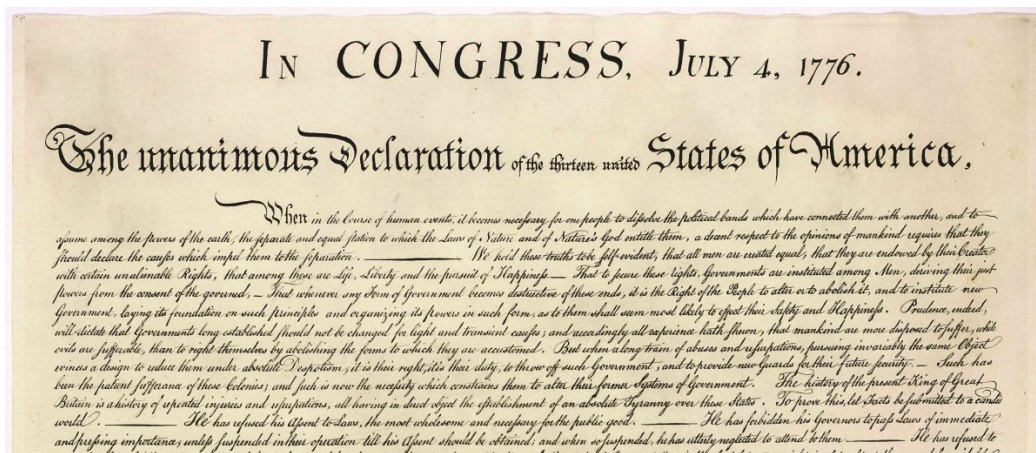 In CONGRESS, July 4, 1776.
The unanimous Declaration of the thirteen united States of America,
When in the Course of human events, it becomes necessary for one people to dissolve the political bands which have connected them with another, and to
assume among the powers of the earth, the separate and equal station to which the Laws of Nature and of Nature's God entitle them, a decent respect to the opinions of mankind requires that they
should declare the causes which impel them to the separation. ——— We hold these truths to be self-evident, that all men are created equal, that they are endowed by their Creator
with certain unalienable Rights, that among these are Life, Liberty and the pursuit of Happiness — That to secure these rights, Governments are instituted among Men, deriving their just
powers from the consent of the governed, — That whenever any Form of Government becomes destructive of these ends, it is the Right of the People to alter or to abolish it, and to institute new
Government, laying its foundation on such principles and organizing its powers in such form, as to them shall seem most likely to effect their Safety and Happiness. Prudence, indeed,
will dictate that Governments long established should not be changed for light and transient causes; and accordingly all experience hath shewn, that mankind are more disposed to suffer, while
evils are sufferable, than to right themselves by abolishing the forms to which they are accustomed. But when a long train of abuses and usurpations, pursuing invariably the same Object
evinces a design to reduce them under absolute Despotism, it is their right, it is their duty, to throw off such Government, and to provide new Guards for their future security. — Such has
been the patient sufferance of these Colonies; and such is now the necessity which constrains them to alter their former Systems of Government. The history of the present King of Great
Britain is a history of repeated injuries and usurpations, all having in direct object the establishment of an absolute Tyranny over these States. To prove this, let Facts be submitted to a candid
world. ——— He has refused his Assent to Laws, the most wholesome and necessary for the public good. ——— He has forbidden his Governors to pass Laws of immediate
and pressing importance, unless suspended in their operation till his Assent should be obtained; and when so suspended, he has utterly neglected to attend to them ——— He has refused to